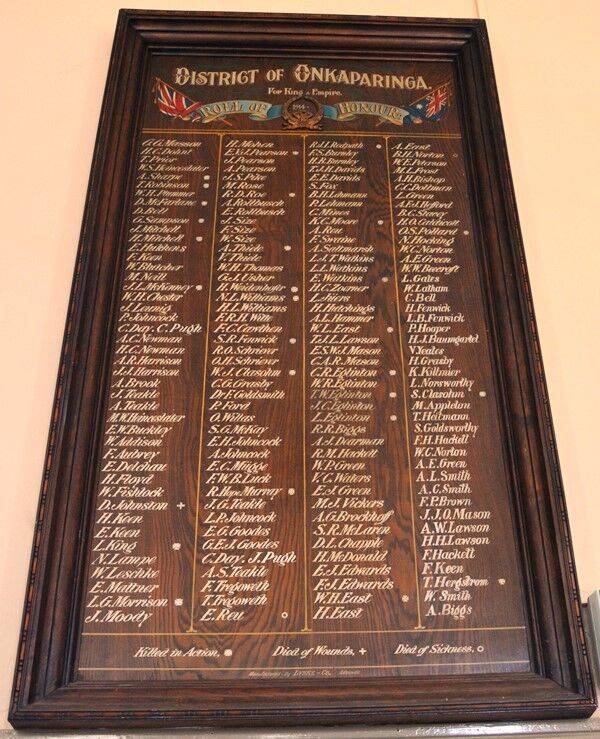 DISTRICT OF ONKAPARINGA.
For King & Empire.
ROLL OF 1914 HONOUR
G.G. Masson
E.C. Dohnt
T. Prior
A. Sharpe
F. Robinson
W.H. Plummer
D. McFarlane
D. Bell
G. Sampson
J. Mitchell
H. Mitchell
F. Keen
W. Bletcher
M. Neill
J.L. McKenney
W.H. Chester
J. Lennig
P. Johncock
C. Day. C. Pugh
A.C. Newman
H.C. Newman
A.R. Harrison
J.J. Harrison
A. Brook
J. Teakle
A. Teakle
E.W. Buckley
W. Addison
F. Aubrey
E. Delchau
H. Floyd
W. Fishlock
D. Johnston +
H. Keen
E. Keen
L. King
N. Lampe
W. Leschke
E. Mattner
L.G. Morrison
J. Moody
H. Mohen
J. Pearson
A. Pearson
J.S. Pike
M. Rose
R.D. Roe
A. Rollbusch
E. Rollbusch
E. Size
F. Size
W. Size
A. Thiele
F. Thiele
W.H. Thomas
G.J. Usher
H. Weidenhofer
N.L. Williams
H.L. Williams
F.R.H. Witt
F.C. Cawthen
S.R. Fenwick
R.O. Schirer
O.H. Schirer
W.J. Clasohm
C.G. Grasby
Dr F. Goldsmith
P. Ford
O. Willas
S.G. McKay
E.H. Johncock
A. Johncock
E.C. Mugge
F.W.B. Luck
R. Hope Murray
J.G. Teakle
L.P. Johncock
E.G. Goodes
G.E.J. Goodes
C. Day. J. Pugh
A.S. Teakle
F. Tregoweth
T. Tregoweth
E. Reu
R.H. Redpath
F.S. Burnley
H.R. Burnley
T.J.H. Davids
E.E. Davids
S. Fox
B.H. Lehmann
P. Lehmann
C. Mines
K.C. Moore
A. Rex
F. Swaine
A. Saltmarsh
L.A.T. Watkins
L.L. Watkins
E. Watkins
H.C. Zoerner
L. Juers
H. Hutchings
A.L. Hammer
W.L. East
T.J.L. Lawson
C.S.W.J. Mason
C.A.R. Mason
C.R. Eglinton
W.R. Eglinton
T.W. Eglinton
J.C. Eglinton
L. Eglinton
R.R. Biggs
A.J. Dearman
R.M. Hackett
W.P. Green
V.C. Waters
E.J. Green
M.J. Vickers
A.G. Brockhoff
S.R. McLaren
D.L. Chapple
H. McDonald
E.J. Edwards
F.J. Edwards
W.H. East
H. East
A. East
B.H. Norton
W.E. Peterson
M.L. Frost
A.H. Bishop
C.C. Dollman
L. Green
B.C. Starcy
H.O. Catchcott
O.S. Pollard
N. Hocking
W.C. Norton
A.E. Green
W.W. Beecroft
L. Gates
W. Latham
C. Bell
H. Fenwick
L.B. Fenwick
P. Hooper
H.J. Baumgartel
V. Yeates
H. Grasby
K. Killmier
L. Norsworthy
S. Clasohm
M. Appleton
T. Heitmann
S. Goldsworthy
F.H. Hackett
W.C. Norton
A.E. Green
A.L. Smith
A.C. Smith
F.P. Brown
J.J.O. Mason
A.W. Lawson
H.H. Lawson
F. Hackett
F. Keen
T. Hergstrom
W. Smith
A. Biggs
Killed in Action, Died of Wounds, + Died of Sickness, o